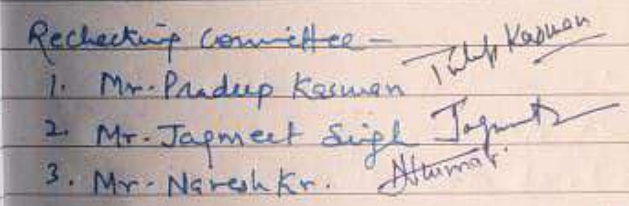 Rechecking Committee -
1. Mr. Pradeep Kaswan
2. Mr. Jagmeet Singh
3. Mr. Naresh Kr.